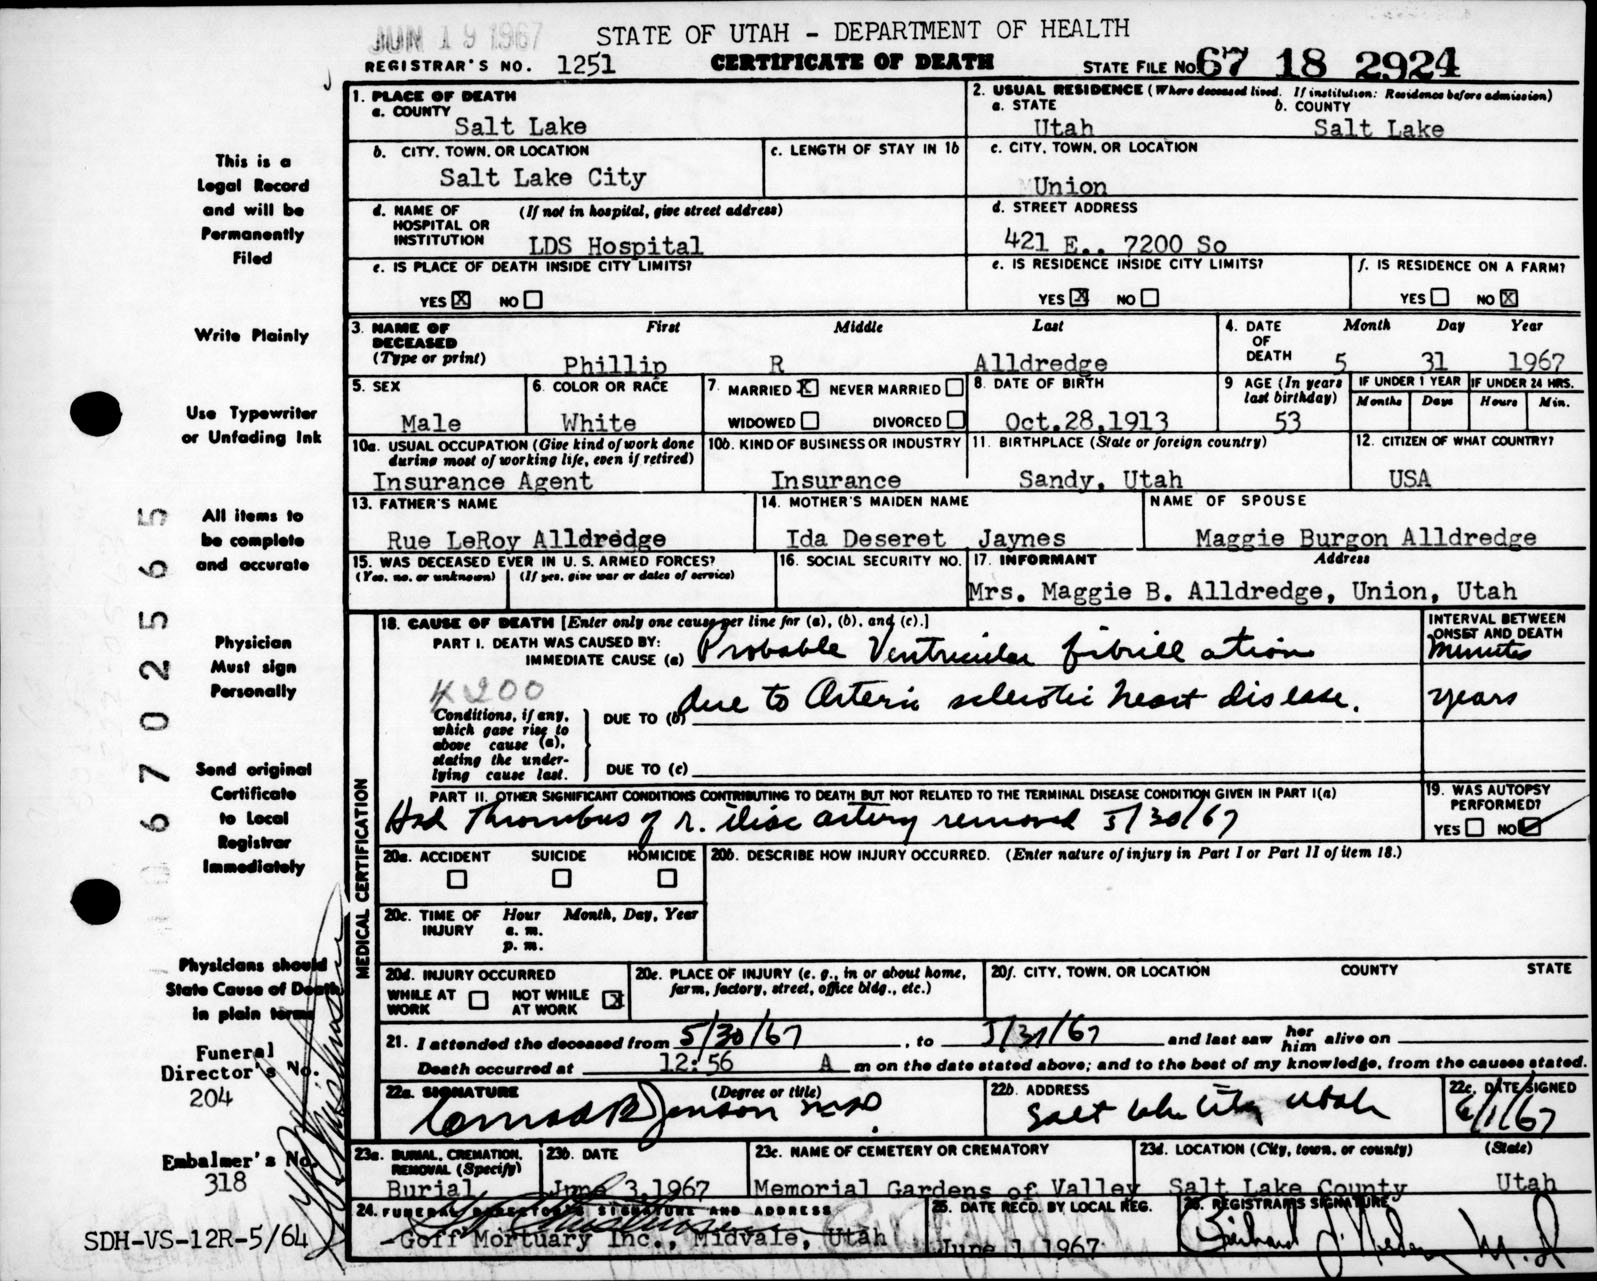 JUN 19 1967
STATE OF UTAH - DEPARTMENT OF HEALTH
REGISTRAR'S NO. 1251 CERTIFICATE OF DEATH STATE FILE NO. 67 18 2924
1. PLACE OF DEATH
a. COUNTY
Salt Lake
2. USUAL RESIDENCE (Where deceased lived. If institution: Residence before admission)
a. STATE b. COUNTY
Utah Salt Lake
b. CITY, TOWN, OR LOCATION
Salt Lake City
c. LENGTH OF STAY IN 1b
c. CITY, TOWN, OR LOCATION
Union
d. NAME OF HOSPITAL OR INSTITUTION (If not in hospital, give street address)
LDS Hospital
d. STREET ADDRESS
421 E., 7200 So
e. IS PLACE OF DEATH INSIDE CITY LIMITS?
YES X NO
e. IS RESIDENCE INSIDE CITY LIMITS?
YES X NO
f. IS RESIDENCE ON A FARM?
YES NO X
3. NAME OF DECEASED (Type or print) First Middle Last
Phillip R Alldredge
4. DATE OF DEATH Month Day Year
5 31 1967
5. SEX
Male
6. COLOR OR RACE
White
7. MARRIED X NEVER MARRIED
WIDOWED DIVORCED
8. DATE OF BIRTH
Oct.28,1913
9 AGE (In years last birthday)
53
IF UNDER 1 YEAR IF UNDER 24 HRS.
Months Days Hours Min.
10a. USUAL OCCUPATION (Give kind of work done during most of working life, even if retired)
Insurance Agent
10b. KIND OF BUSINESS OR INDUSTRY
Insurance
11. BIRTHPLACE (State or foreign country)
Sandy, Utah
12. CITIZEN OF WHAT COUNTRY?
USA
13. FATHER'S NAME
Rue LeRoy Alldredge
14. MOTHER'S MAIDEN NAME
Ida Deseret Jaynes
NAME OF SPOUSE
Maggie Burgon Alldredge
15. WAS DECEASED EVER IN U. S. ARMED FORCES?
(Yes, no, or unknown) (If yes, give war or dates of service)
16. SOCIAL SECURITY NO.
17. INFORMANT Address
Mrs. Maggie B. Alldredge, Union, Utah
MEDICAL CERTIFICATION
18. CAUSE OF DEATH [Enter only one cause per line for (a), (b), and (c).]
INTERVAL BETWEEN ONSET AND DEATH
PART I. DEATH WAS CAUSED BY:
IMMEDIATE CAUSE (a) Probable Ventricular fibrillation Minutes
4200
Conditions, if any, which gave rise to above cause (a), stating the underlying cause last.
DUE TO (b) due to Arterio sclerotic heart disease. years
DUE TO (c)
PART II. OTHER SIGNIFICANT CONDITIONS CONTRIBUTING TO DEATH BUT NOT RELATED TO THE TERMINAL DISEASE CONDITION GIVEN IN PART I(a)
Had Thrombus of r. iliac artery removed 5/30/67
19. WAS AUTOPSY PERFORMED?
YES NO
20a. ACCIDENT SUICIDE HOMICIDE
20b. DESCRIBE HOW INJURY OCCURRED. (Enter nature of injury in Part I or Part II of item 18.)
20c. TIME OF INJURY Hour Month, Day, Year
a. m.
p. m.
20d. INJURY OCCURRED
WHILE AT WORK NOT WHILE AT WORK X
20e. PLACE OF INJURY (e. g., in or about home, farm, factory, street, office bldg., etc.)
20f. CITY, TOWN, OR LOCATION COUNTY STATE
21. I attended the deceased from 5/30/67, to 5/31/67 and last saw her him alive on
Death occurred at 12:56 A m on the date stated above; and to the best of my knowledge, from the causes stated.
22a. SIGNATURE (Degree or title)
Conrad B Jenson M.D.
22b. ADDRESS
Salt Lake City Utah
22c. DATE SIGNED
6/1/67
23a. BURIAL, CREMATION, REMOVAL (Specify)
Burial
23b. DATE
June 3,1967
23c. NAME OF CEMETERY OR CREMATORY
Memorial Gardens of Valley
23d. LOCATION (City, town, or county) (State)
Salt Lake County Utah
24. FUNERAL DIRECTOR'S SIGNATURE AND ADDRESS
Goff Mortuary Inc., Midvale, Utah
25. DATE RECD. BY LOCAL REG.
June 1 1967
26. REGISTRAR'S SIGNATURE
M.D
This is a
Legal Record
and will be
Permanently
Filed
Write Plainly
Use Typewriter
or Unfading Ink
All items to
be complete
and accurate
Physician
Must sign
Personally
Send original
Certificate
to Local
Registrar
Immediately
Physicians should
State Cause of Death
in plain terms
Funeral
Director's No.
204
Embalmer's No.
318
SDH-VS-12R-5/64
067025655